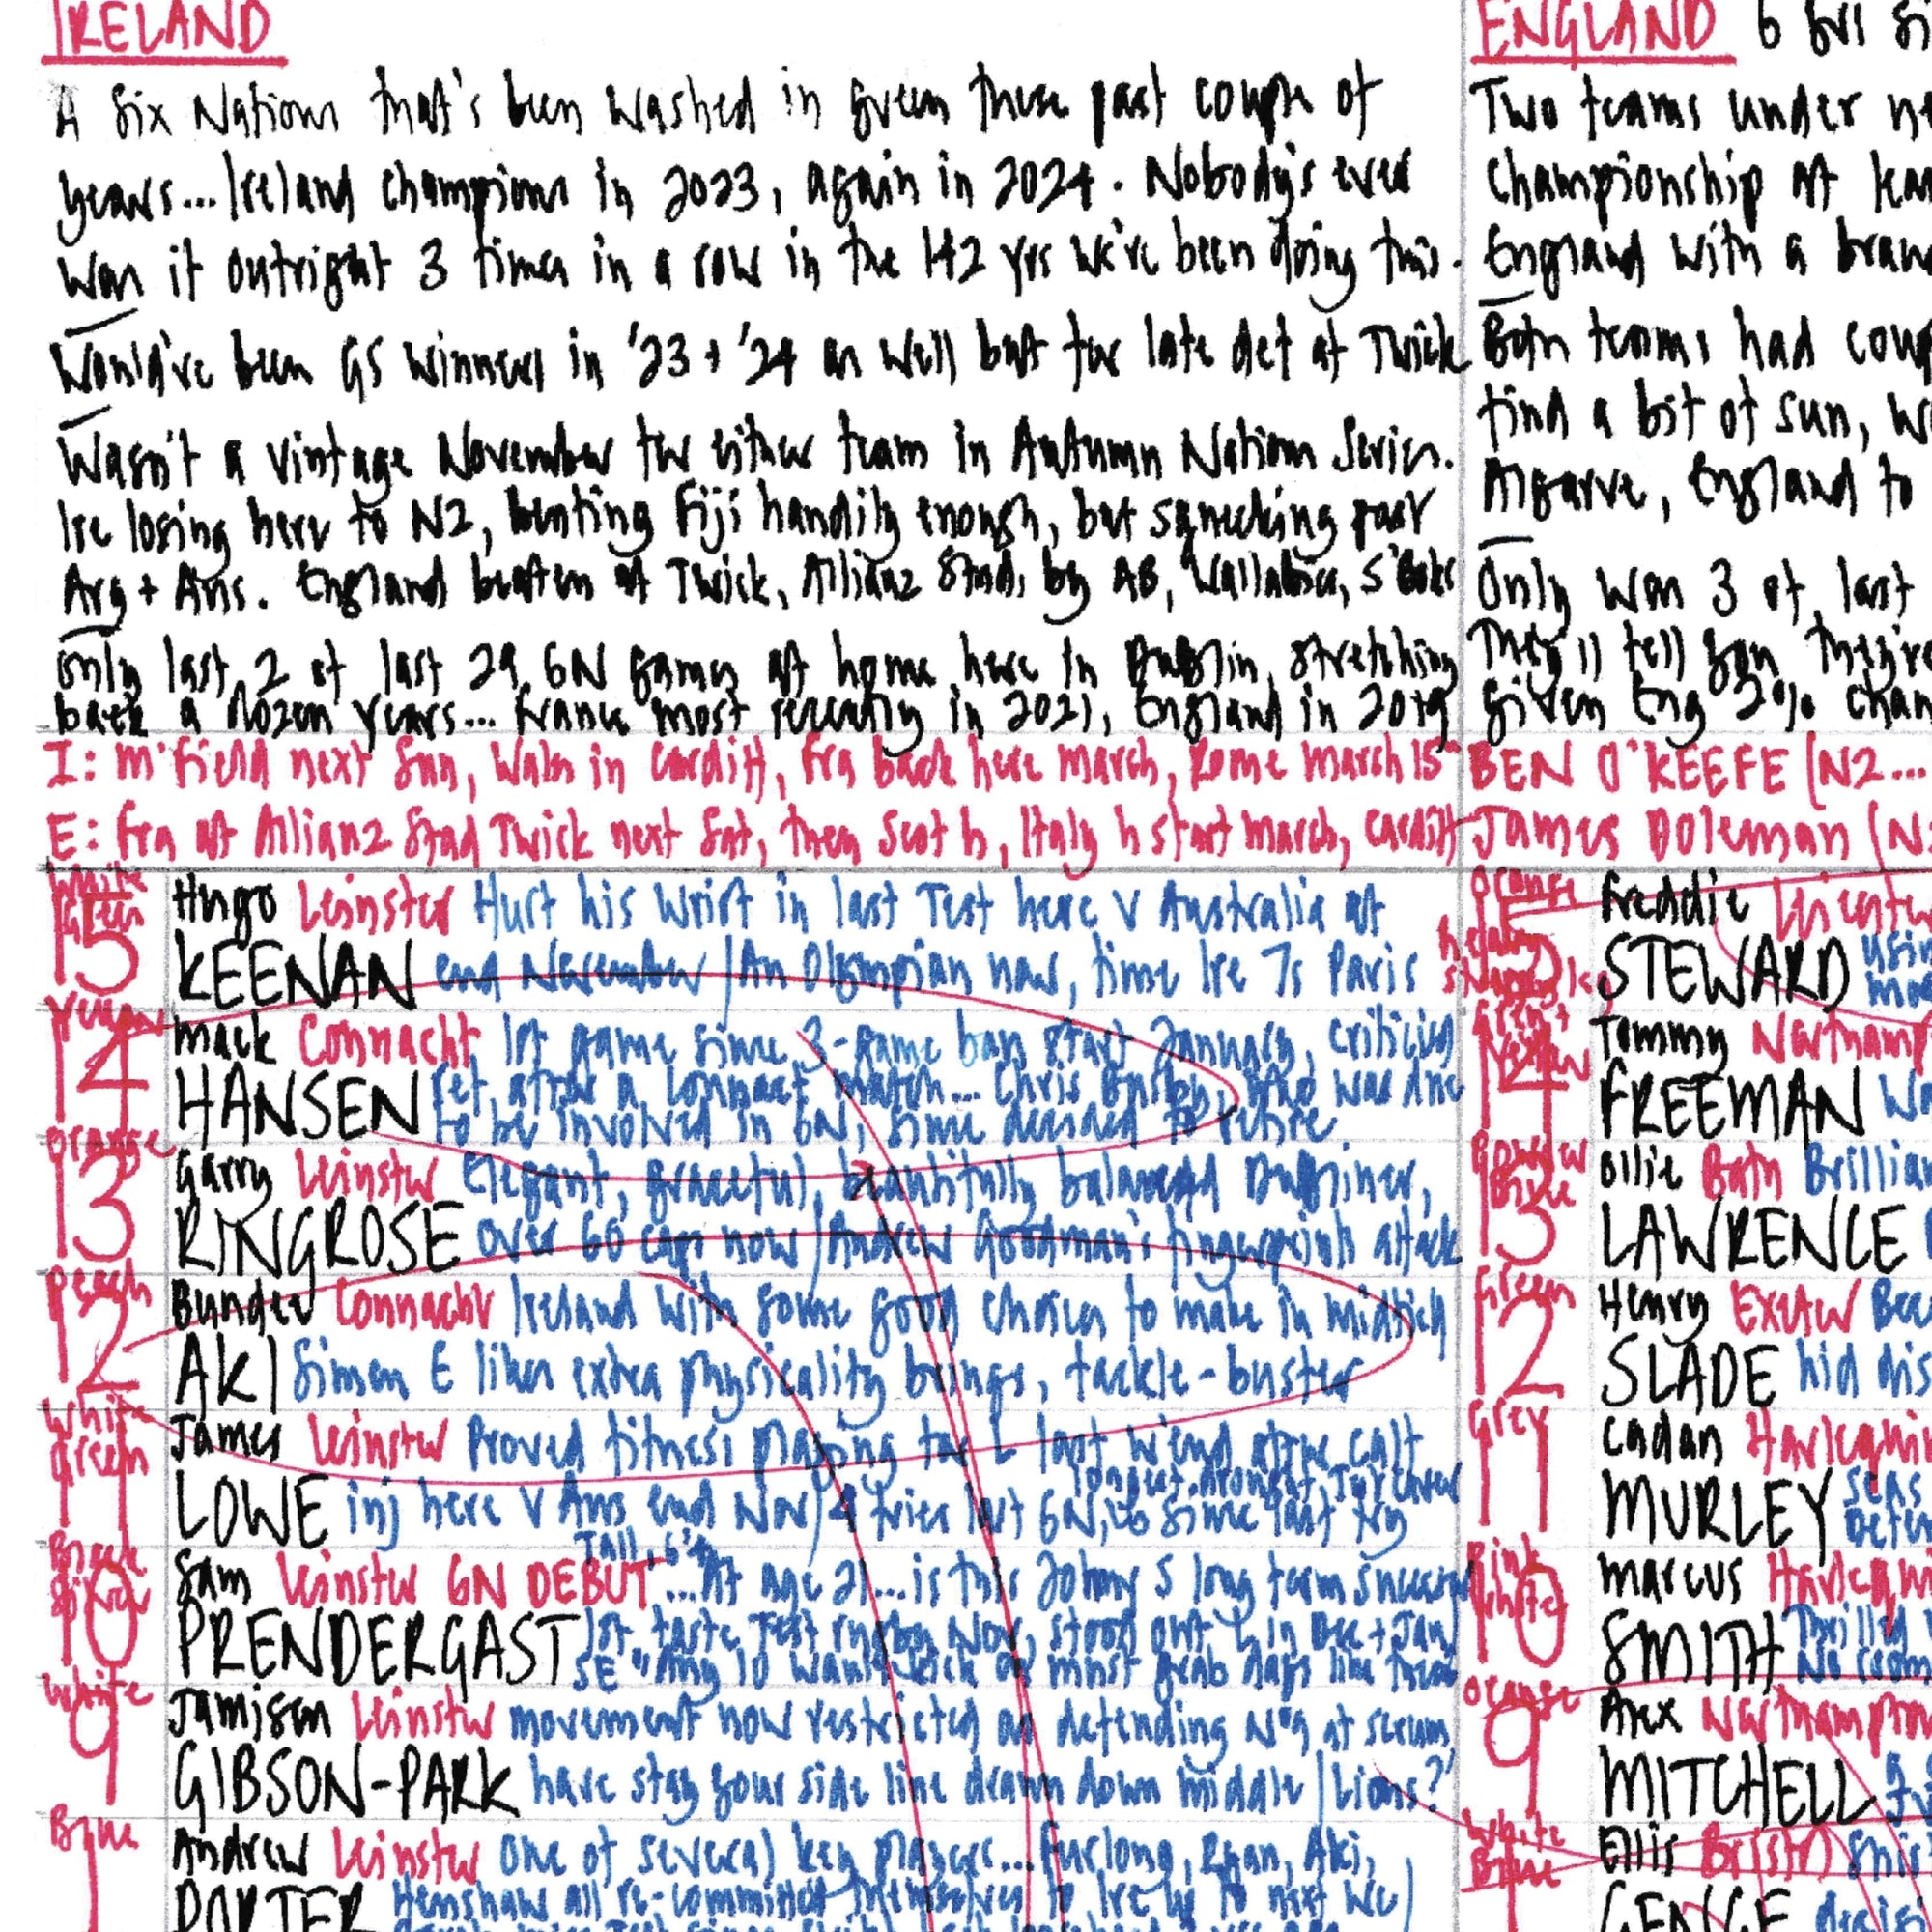 IRELAND
A Six Nations that's been washed in green these past couple of
years... Ireland champions in 2023, again in 2024. Nobody's ever
won it outright 3 times in a row in the 142 yrs we've been doing this.
Would've been GS winners in '23 + '24 as well but for late def at Twick
Wasn't a vintage November for either team in Autumn Nations Series.
Ire losing here to NZ, beating Fiji handily enough, but squeaking past
Arg + Aus. England beaten at Twick, Allianz Stad, by AB, Wallabies, S'Boks
Only last 2 of last 29 6N games at home here in Dublin, stretching
back a dozen years... France most recently in 2021, England in 2019
I: M'field next Sun, Wales in Cardiff, Fra back here March, Rome March 15
E: Fra at Allianz Stad Twick next Sat, then Scot h, Italy h start March, Cardiff
White
Green
15 Hugo Leinster Hurt his wrist in last Test here v Australia at
KEENAN end November / An Olympian now, time Ire 7s Paris
14 Mack Connacht 1st game since 3-game ban start January, criticising
HANSEN ref after a Connacht match... Chris Busby, who was due
to be involved in 6N, since decided to retire
Orange
13 Garry Leinster Elegant, graceful, beautifully balanced Dubliner,
RINGROSE over 60 caps now / Andrew Goodman's fingerprints attack
Peach
12 Bundee Connacht Ireland with some good choices to make in midfield
AKI Simon E likes extra physicality brings, tackle-buster
White
Green
11 James Leinster Proved fitness playing for L last w'end after calf
LOWE inj here v Aus end Nov / 4 tries last 6N, since last try
longest drought, Turnover
10 Sam Leinster 6N DEBUT ...At age 21... is this Johnny S long term successor
Tall, 6'4
PRENDERGAST 1st taste Test rugby Nov, stood out L in Dec + Jan
SE "Any 10 wants kick on must grab days like these
White
9 Jamison Leinster movement now restricted on defending No9 at scrum,
GIBSON-PARK have stay your side line drawn down middle / Lions?
Blue
1 Andrew Leinster One of several key players... Furlong, Ryan, Aki,
PORTER Henshaw all re-committed themselves to Ire up to next WC
ENGLAND 6
Two teams under
Championship at
England with a
Both teams had
find a bit of sun,
Algarve, England to
Only won 3 of last
They'll tell you they're
given Eng 29%
BEN O'KEEFE (NZ...
James Doleman (
Orange
15 Freddie
STEWARD
14 Tommy
FREEMAN
13 Ollie Bath
LAWRENCE
Green
12 Henry Exeter
SLADE hid
Grey
11 Cadan
MURLEY
Pink
White
10 Marcus
SMITH Thrilled
Orange
9 Alex
MITCHELL
White
Blue
1 Ellis Bristol
GENGE